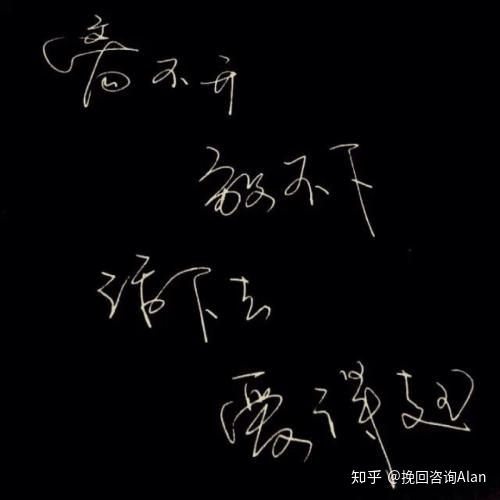 离不开
放不下
活下去
知乎 @挽回咨询Alan